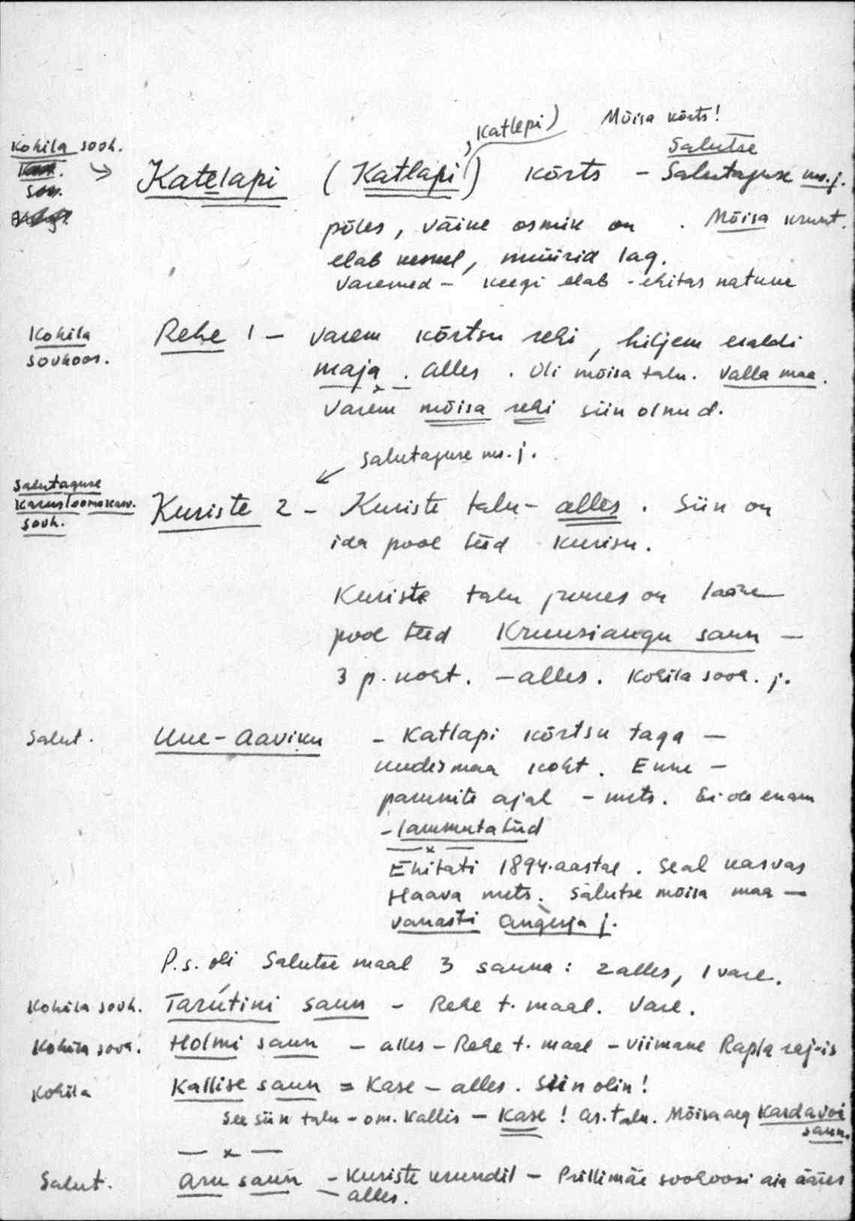 , Katlepi) Mõisa kõrts!
Kohila sovh. Salutse
Sov. Katelapi (Katlapi) kõrts – Salutaguse ms.j.
põles, väike osmik on. Mõisa krunt.
elab keegi, müürid lag.
Varemed – keegi elab – ehitas
Kohila Rehe 1 – varem kõrtsu rehi, hiljem eraldi
sovhoos. maja. Alles. Oli mõisa talu. Valla maa.
Varem mõisa rehi siin olnud.
Salutaguse ms.j.
Salutaguse
Karusloomakasv. Kuriste 2 – Kuriste talu – alles. Siin on
sovh. ida pool teed kurisu.
Kuriste talu juures on lääne
pool teed Kruusiaugu saun –
3 p. koht. – alles. Kohila sovh. j.
Salut. Uue-Aaviku – Katlapi kõrtsu taga –
uudismaa koht. Enne –
parunite ajal – mets. Ei ole enam
– lammutatud
– x –
Ehitati 1894. aastal. Seal kasvas
Haava mets. Salutse mõisa maa –
vanasti Angerja j.
P.s. oli Salutse maal 3 sauna: 2 alles, 1 vare.
Kohila sovh. Tarutini saun – Rehe t. maal. Vare.
Kohila sovh. Holmi saun – alles – Rehe t. maal – viimane Rapla raj-is
Kohila Kallise saun = Kase – alles. Siin olin!
See siin talu – om. Kallis – Kase! as. talu. Mõisa aeg Kardavoi
saun.
– x –
Salut. Aru saun – Kuriste krundil – Prillimäe sovhoosi aia ääres
– alles.